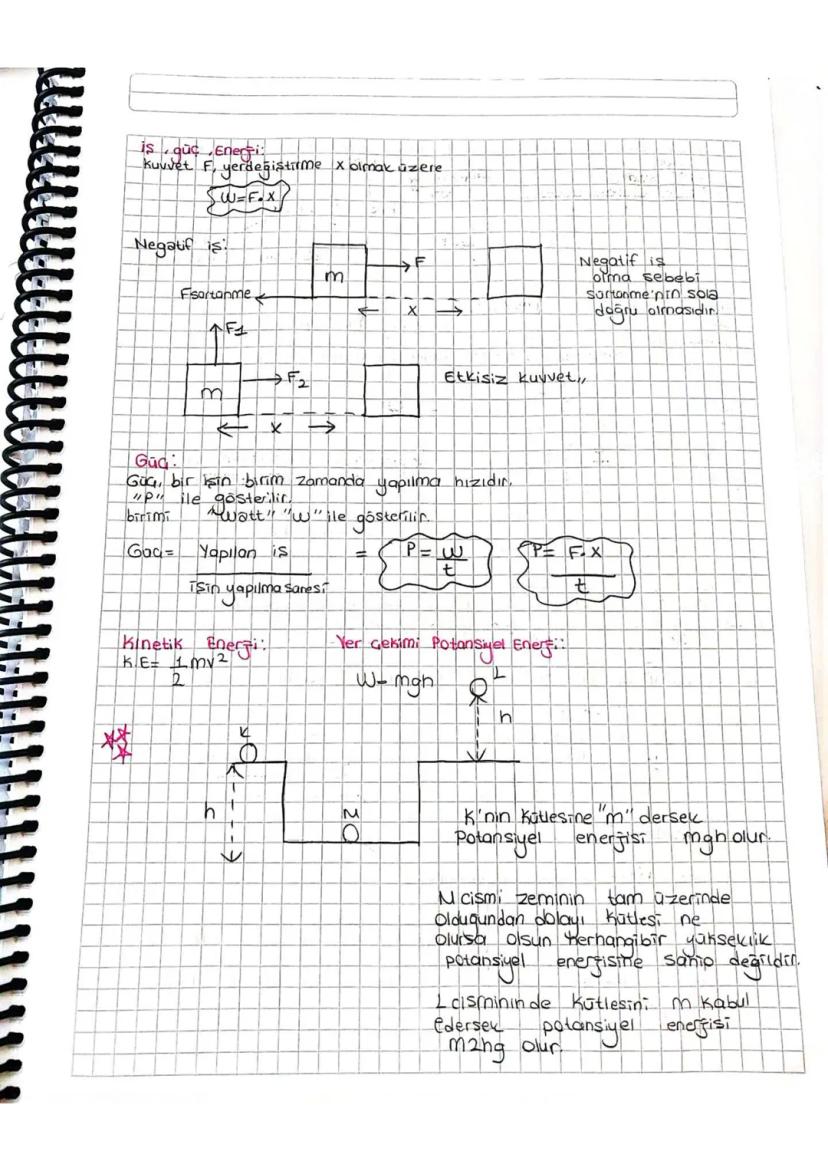 iş, güç, Enerji:
Kuvvet F, yerdeğiştirme x olmak üzere
W=F.X
Negatif iş:
m
F
Fsürtünme
X
Negatif iş
olma sebebi
sürtünme'nin sola
doğru olmasıdır.
F1
m
F2
X
Etkisiz kuvvet,,
Güç:
Güç, bir işin birim zamanda yapılma hızıdır.
"P" ile gösterilir.
birimi "Watt" "W" ile gösterilir.
Güç= Yapılan iş = P= W P= F.X
işin yapılma süresi t t
Kinetik Enerji: Yer Çekimi Potansiyel Enerji:
K.E= 1 mv²
2
W= mgh
L
h
K
h
M
K'nin Kütlesine "m" dersek
Potansiyel enerjisi mgh olur.
M cismi zeminin tam üzerinde
olduğundan dolayı kütlesi ne
olursa olsun Herhangibir yükseklik
potansiyel enerjisine sahip değildir.
L cisminin de kütlesini m kabul
edersek potansiyel enerjisi
m2hg olur.